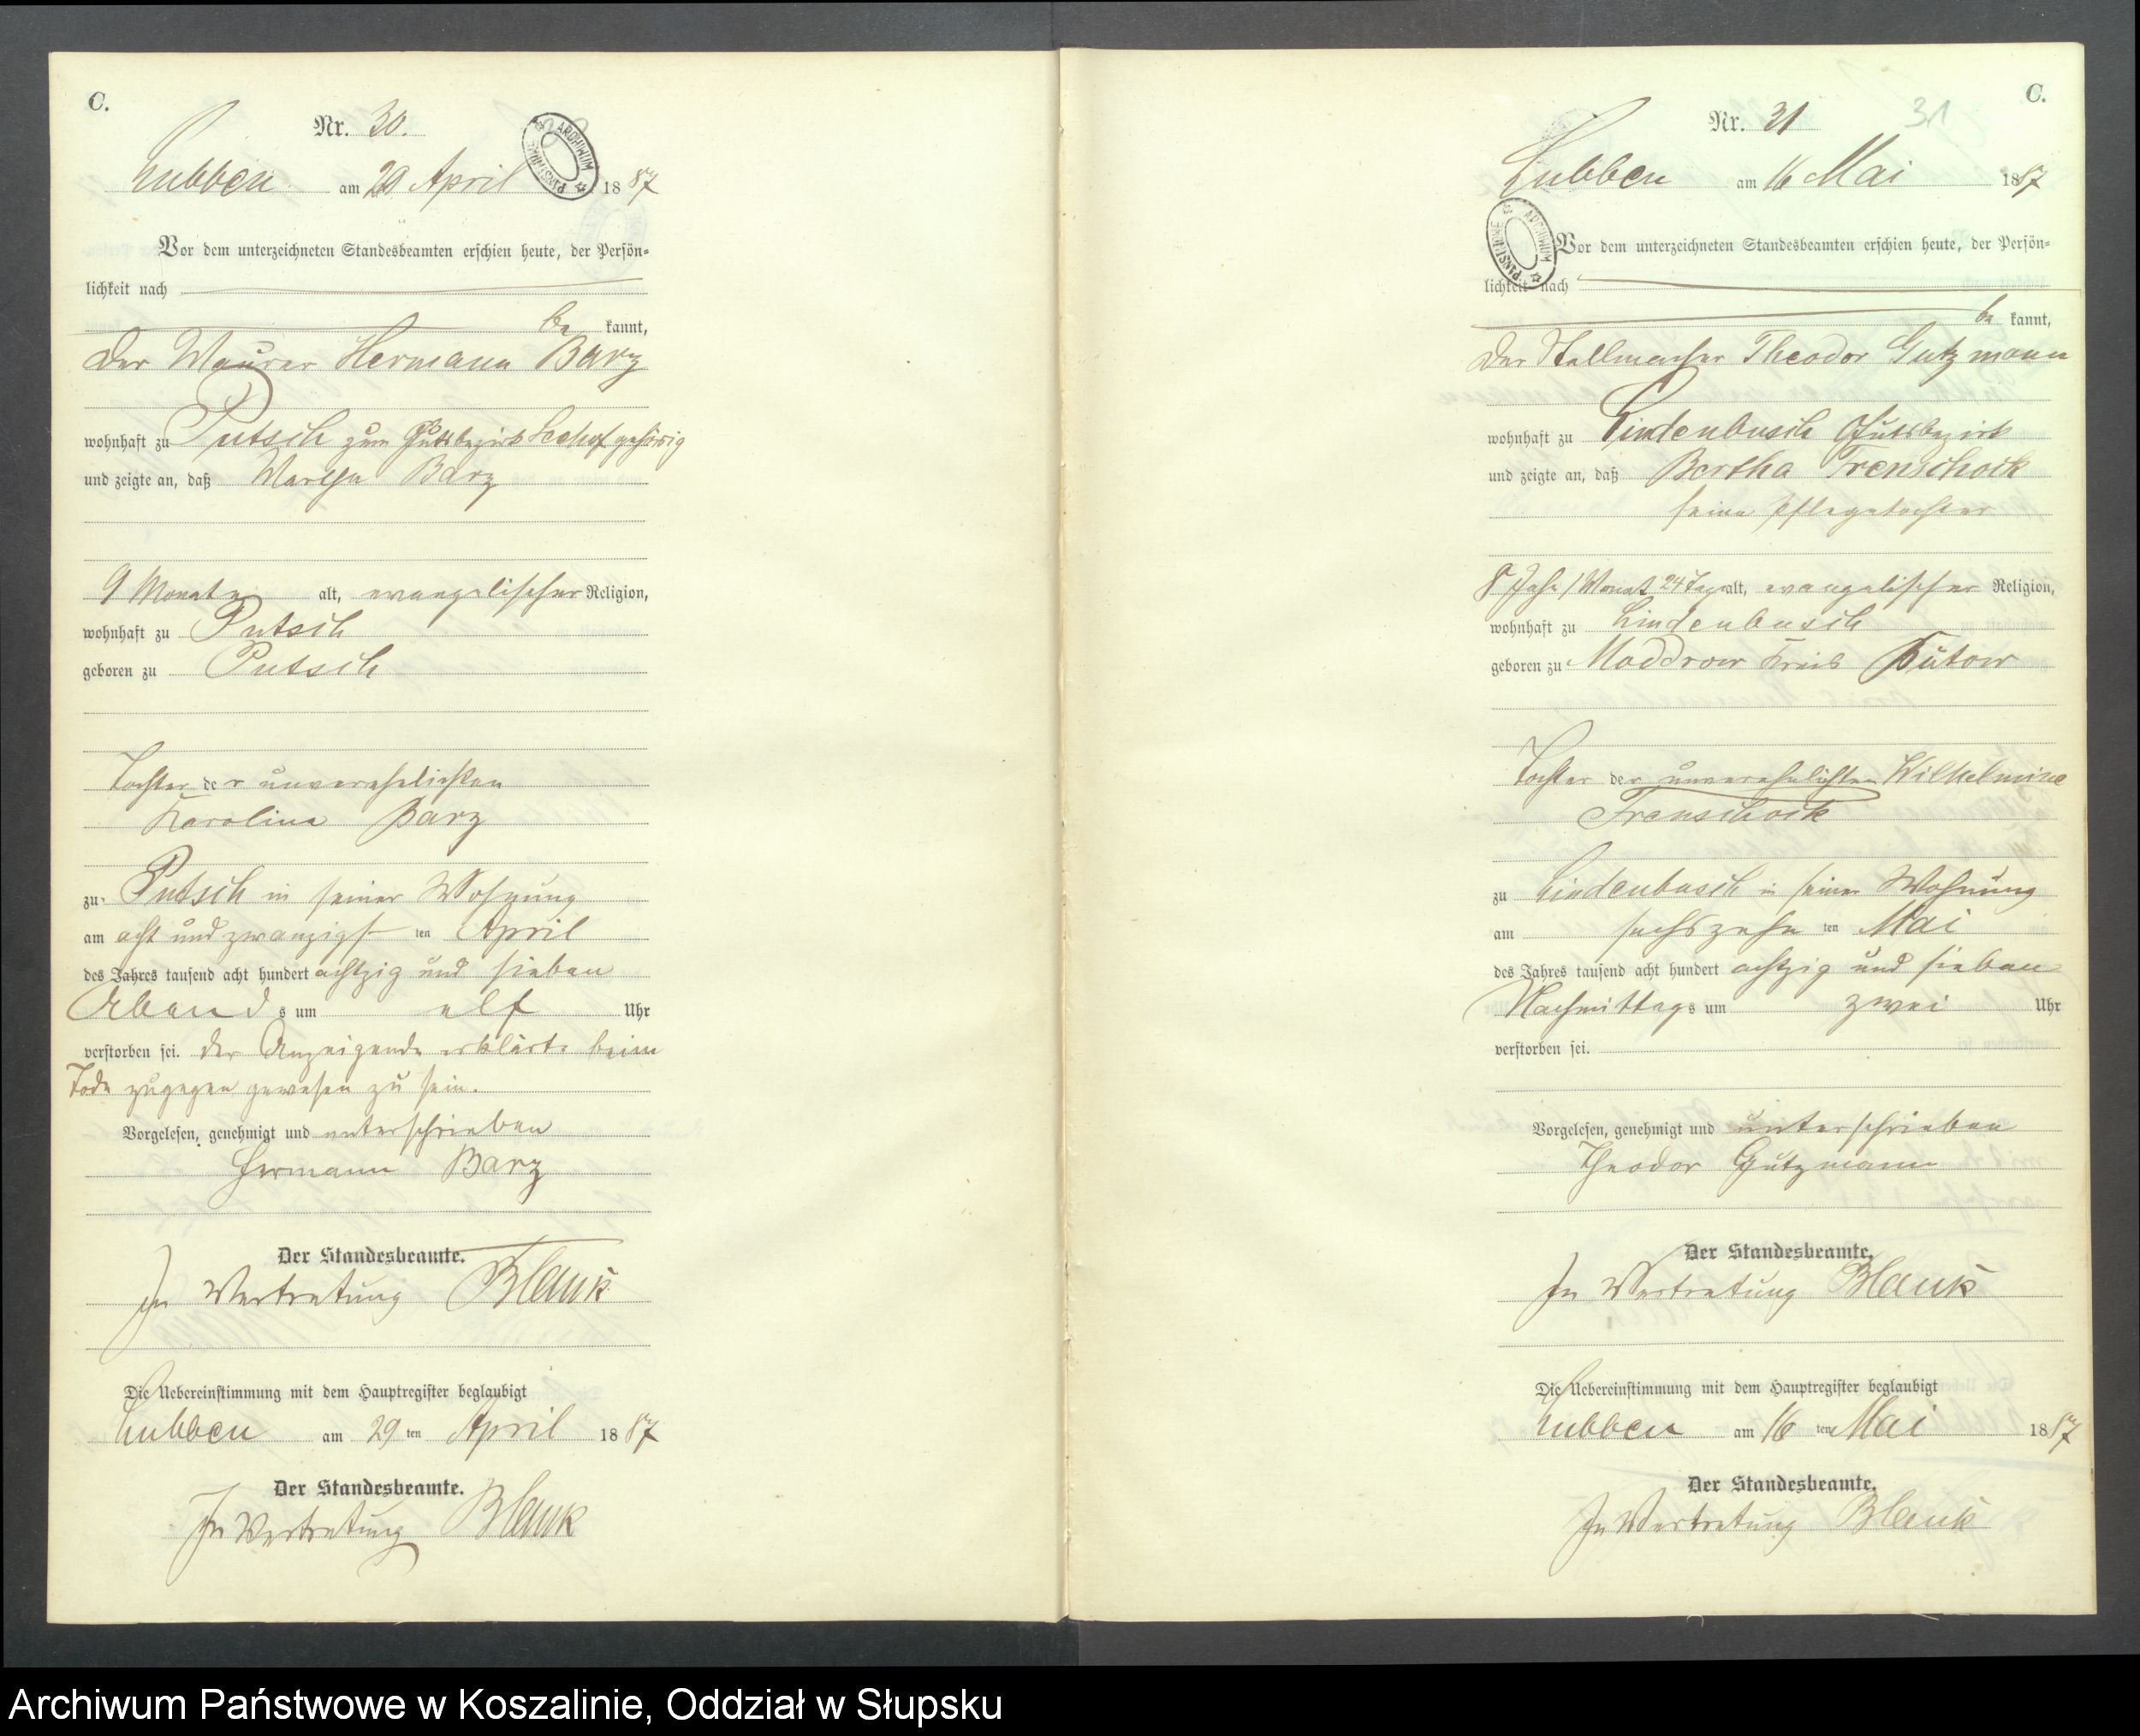 C.
Nr. 30.
Lubben am 29 April 1887
ARCHIWUM PAŃSTWOWE
Vor dem unterzeichneten Standesbeamten erschien heute, der Persön-
lichkeit nach
be kannt,
der Maurer Hermann Barz
wohnhaft zu Putsch zum Gutsbezirk Seehof gehörig
und zeigte an, daß Martha Barz
9 Monate alt, evangelischer Religion,
wohnhaft zu Putsch
geboren zu Putsch
Tochter der unverehelichten
Karoline Barz
zu Putsch in seiner Wohnung
am acht und zwanzigsten April
des Jahres tausend acht hundert achtzig und sieben
Abends um elf Uhr
verstorben sei. der Anzeigende erklärte beim
Tode zugegen gewesen zu sein.
Vorgelesen, genehmigt und unterschrieben
Hermann Barz
Der Standesbeamte.
In Vertretung Blank
Die Uebereinstimmung mit dem Hauptregister beglaubigt
Lubben am 29 ten April 1887
Der Standesbeamte.
In Vertretung Blank
C.
31
Nr. 31
Lubben am 16 Mai 1887
ARCHIWUM PAŃSTWOWE
Vor dem unterzeichneten Standesbeamten erschien heute, der Persön-
lichkeit nach
be kannt,
der Stellmacher Theodor Gutzmann
wohnhaft zu Lindenbusch Gutsbezirk
und zeigte an, daß Bertha Trenschock
seine Pflegetochter
8 Jahr 1 Monat 24 Tage alt, evangelischer Religion,
wohnhaft zu Lindenbusch
geboren zu Moddrow Kreis Bütow
Tochter der unverehelichten Wilhelmine
Trenschock
zu Lindenbusch in seiner Wohnung
am sechszehn ten Mai
des Jahres tausend acht hundert achtzig und sieben
Nachmittags um zwei Uhr
verstorben sei.
Vorgelesen, genehmigt und unterschrieben
Theodor Gutzmann
Der Standesbeamte.
In Vertretung Blank
Die Uebereinstimmung mit dem Hauptregister beglaubigt
Lubben am 16 ten Mai 1887
Der Standesbeamte.
In Vertretung Blank
Archiwum Państwowe w Koszalinie, Oddział w Słupsku